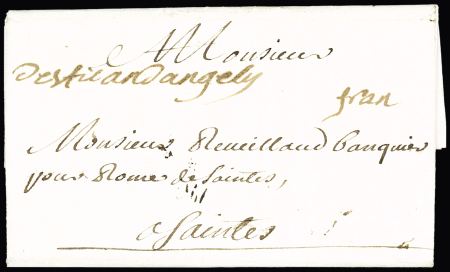 Monsieur
destieandangely
fran
Monsieur Reveillaud banquier
pour Rome de Saintes,
a Saintes